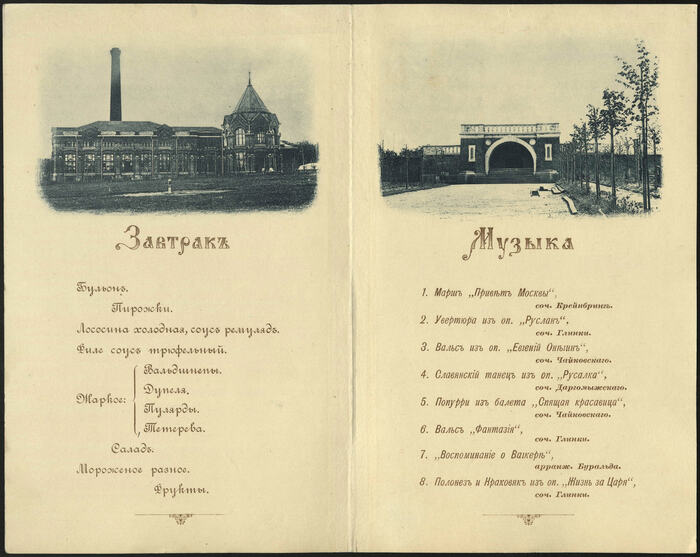 Завтракъ
Бульонъ.
Пирожки.
Лососина холодная, соусъ ремулядъ.
Филе соусъ трюфельный.
Жаркое:
Вальдшнепы.
Дупеля.
Пулярды.
Тетерева.
Саладъ.
Мороженое разное.
Фрукты.
Музыка
1. Маршъ „Привѣтъ Москвы“,
соч. Крейнбрингъ.
2. Увертюра изъ оп. „Русланъ“,
соч. Глинки.
3. Вальсъ изъ оп. „Евгеній Онѣгинъ“,
соч. Чайковскаго.
4. Славянскій танецъ изъ оп. „Русалка“,
соч. Даргомыжскаго.
5. Попурри изъ балета „Спящая красавица“,
соч. Чайковскаго.
6. Вальсъ „Фантазія“,
соч. Глинки.
7. „Воспоминаніе о Вагнерѣ“,
арранж. Буральда.
8. Полонезъ и Краковякъ изъ оп. „Жизнь за Царя“,
соч. Глинки.